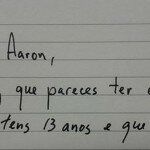 Aaron,
que pareces ter
tens 13 anos e que